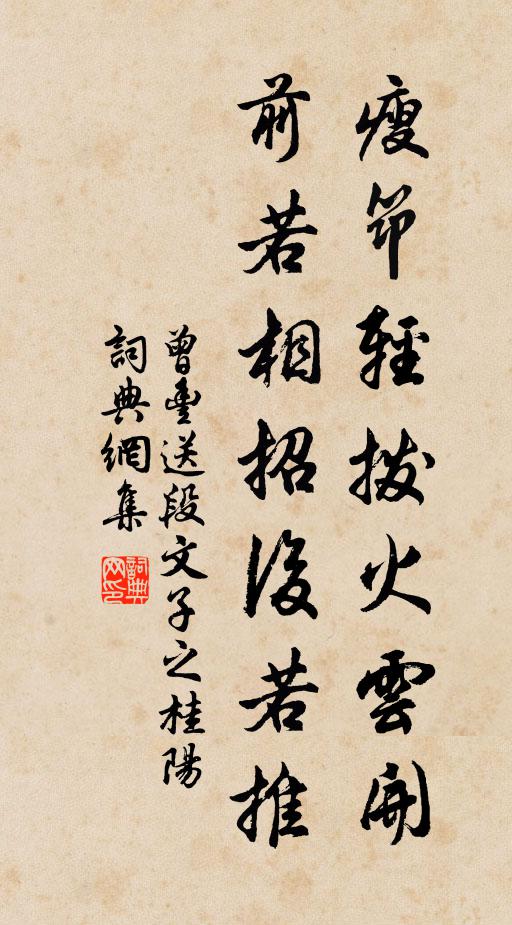 瘦筇輕撥火雲開
前若相招後若推
曾豐送段文子之桂陽
詞典網集
詞典网印